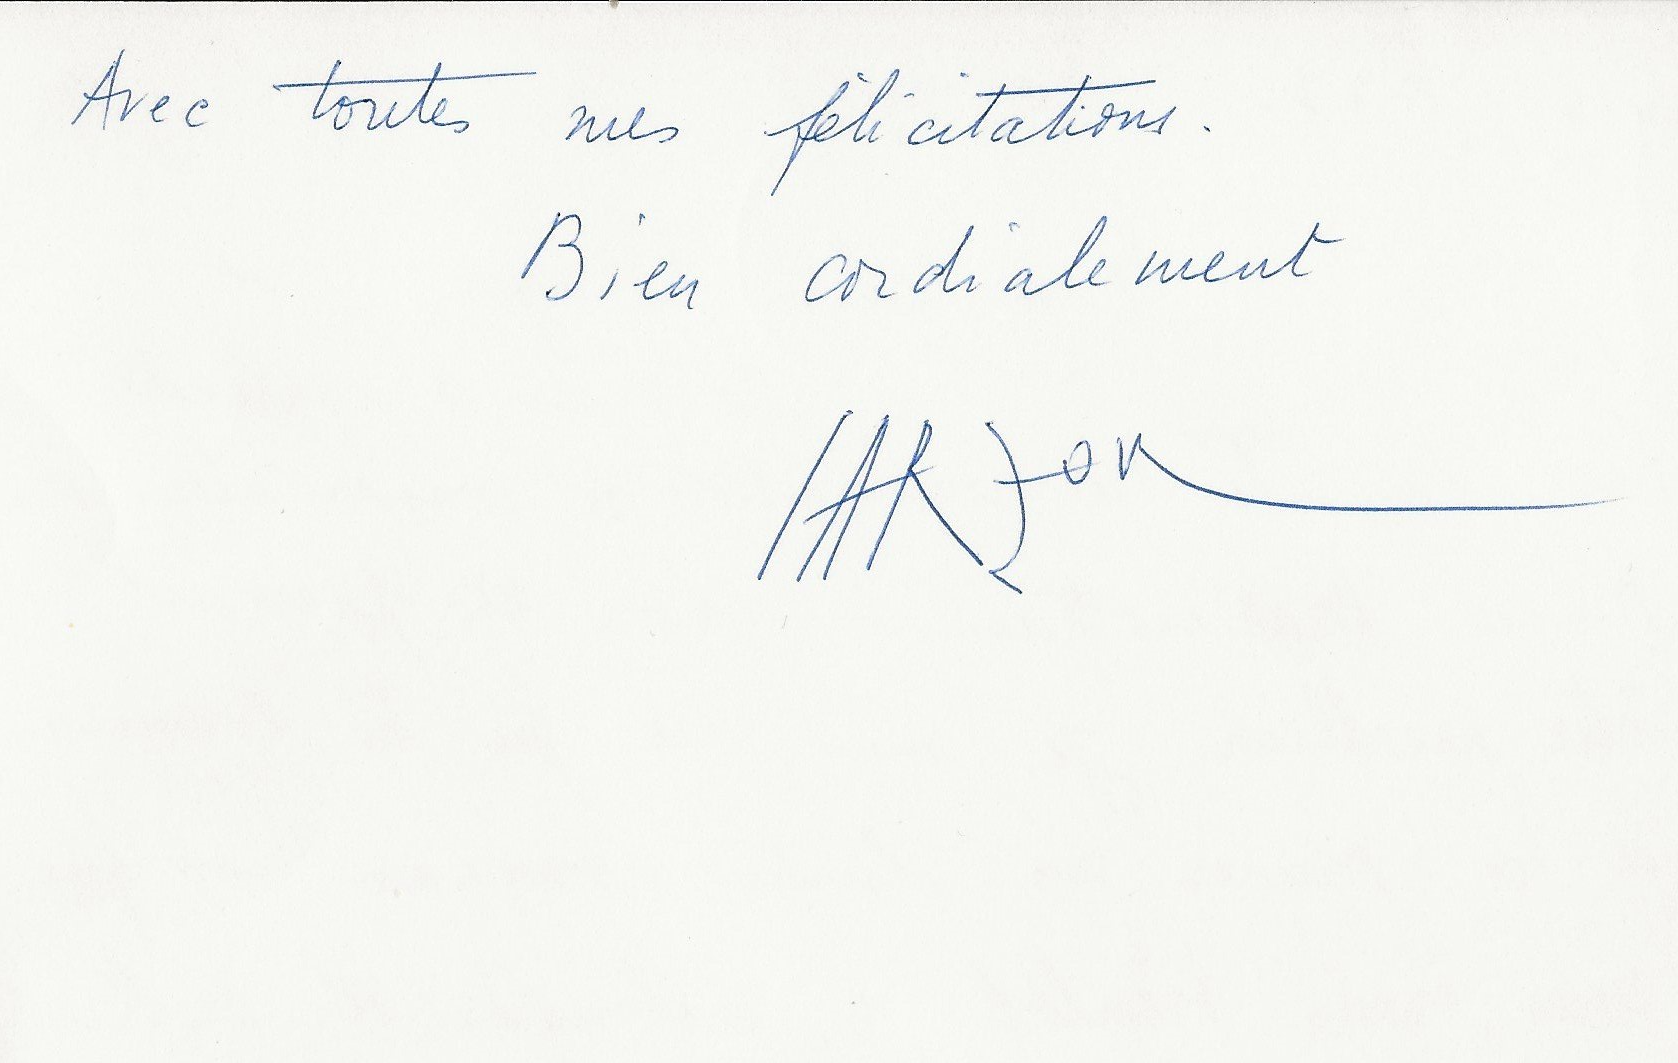 Avec toutes mes félicitations.
Bien cordialement